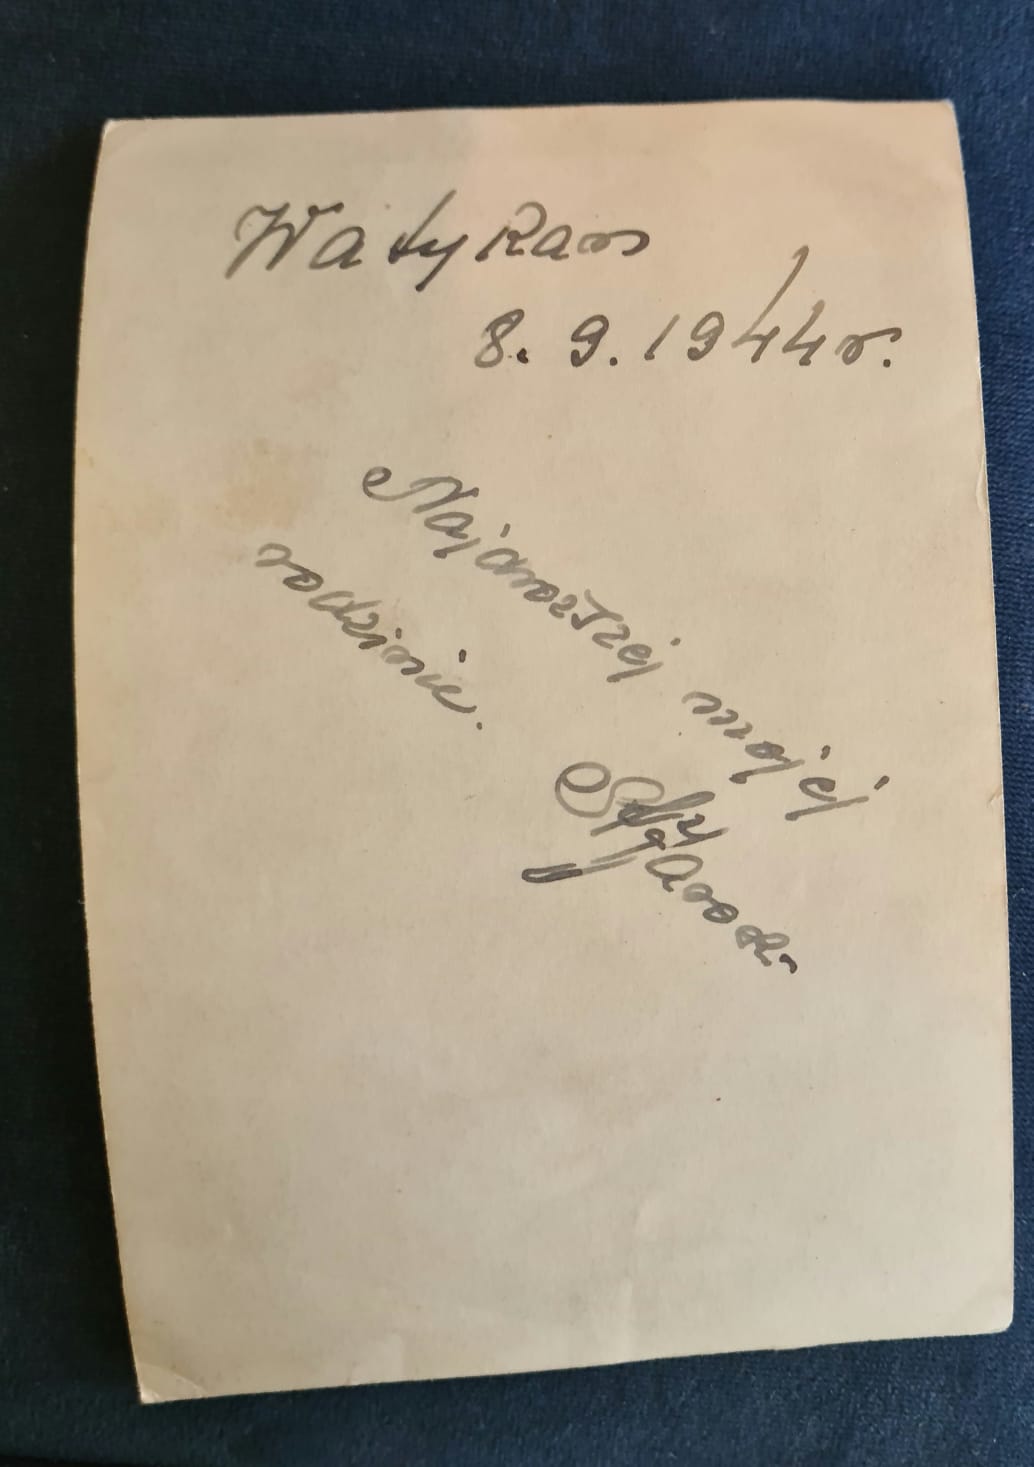 Watykan
8. 9. 1944 r.
Najdroższej mojej
rodzinie.